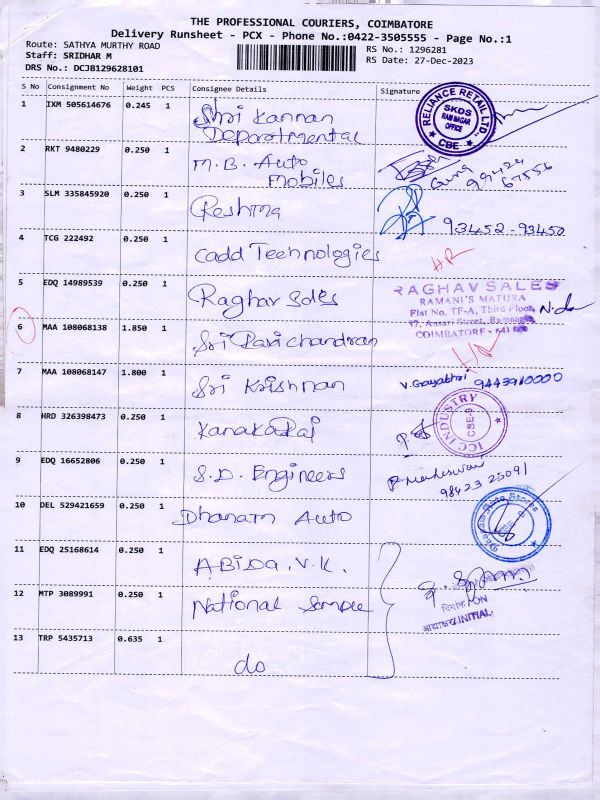 THE PROFESSIONAL COURIERS, COIMBATORE
Delivery Runsheet - PCX - Phone No.:0422-3505555 - Page No.:1
Route: SATHYA MURTHY ROAD
RS No.: 1296281
Staff: SRIDHAR M
RS Date: 27-Dec-2023
DRS No.: DCJB129628101
S No Consignment No Weight PCS Consignee Details Signature
1 IXM 505614676 0.245 1 Shri Kannan
Departmental
RELIANCE RETAIL LTD.
SKDS
RAM NAGAR
OFFICE
CBE
2 RKT 9480229 0.250 1 M.B. Auto
Mobiles
Guna
99424
67556
3 SLM 335845920 0.250 1 Reshma
93452-93450
4 TCG 222492 0.250 1 Cadd Technologies
5 EDQ 14989539 0.250 1 Raghav Sales
RAGHAV SALES
RAMANI'S MATURA
Flat No. TF-A, Third Floor,
97, Ansari Street, Ramnagar
COIMBATORE - 641
6 MAA 108068138 1.850 1 Sri Ravichandran
7 MAA 108068147 1.800 1 Sri Krishnan
V. Gayathri 9443910000
8 HRD 326398473 0.250 1 Kanakaraj
ICC INDUSTRY
CBE-9
9 EDQ 16652806 0.250 1 S.D. Engineers
P. Maheswari
98423 25091
10 DEL 529421659 0.250 1 Dhanam Auto
11 EDQ 25168614 0.250 1 ABIDA.V.K.
12 MTP 3089991 0.250 1 National Sample
दिनांक/ON
आद्याक्षर/INITIAL
13 TRP 5435713 0.635 1
do